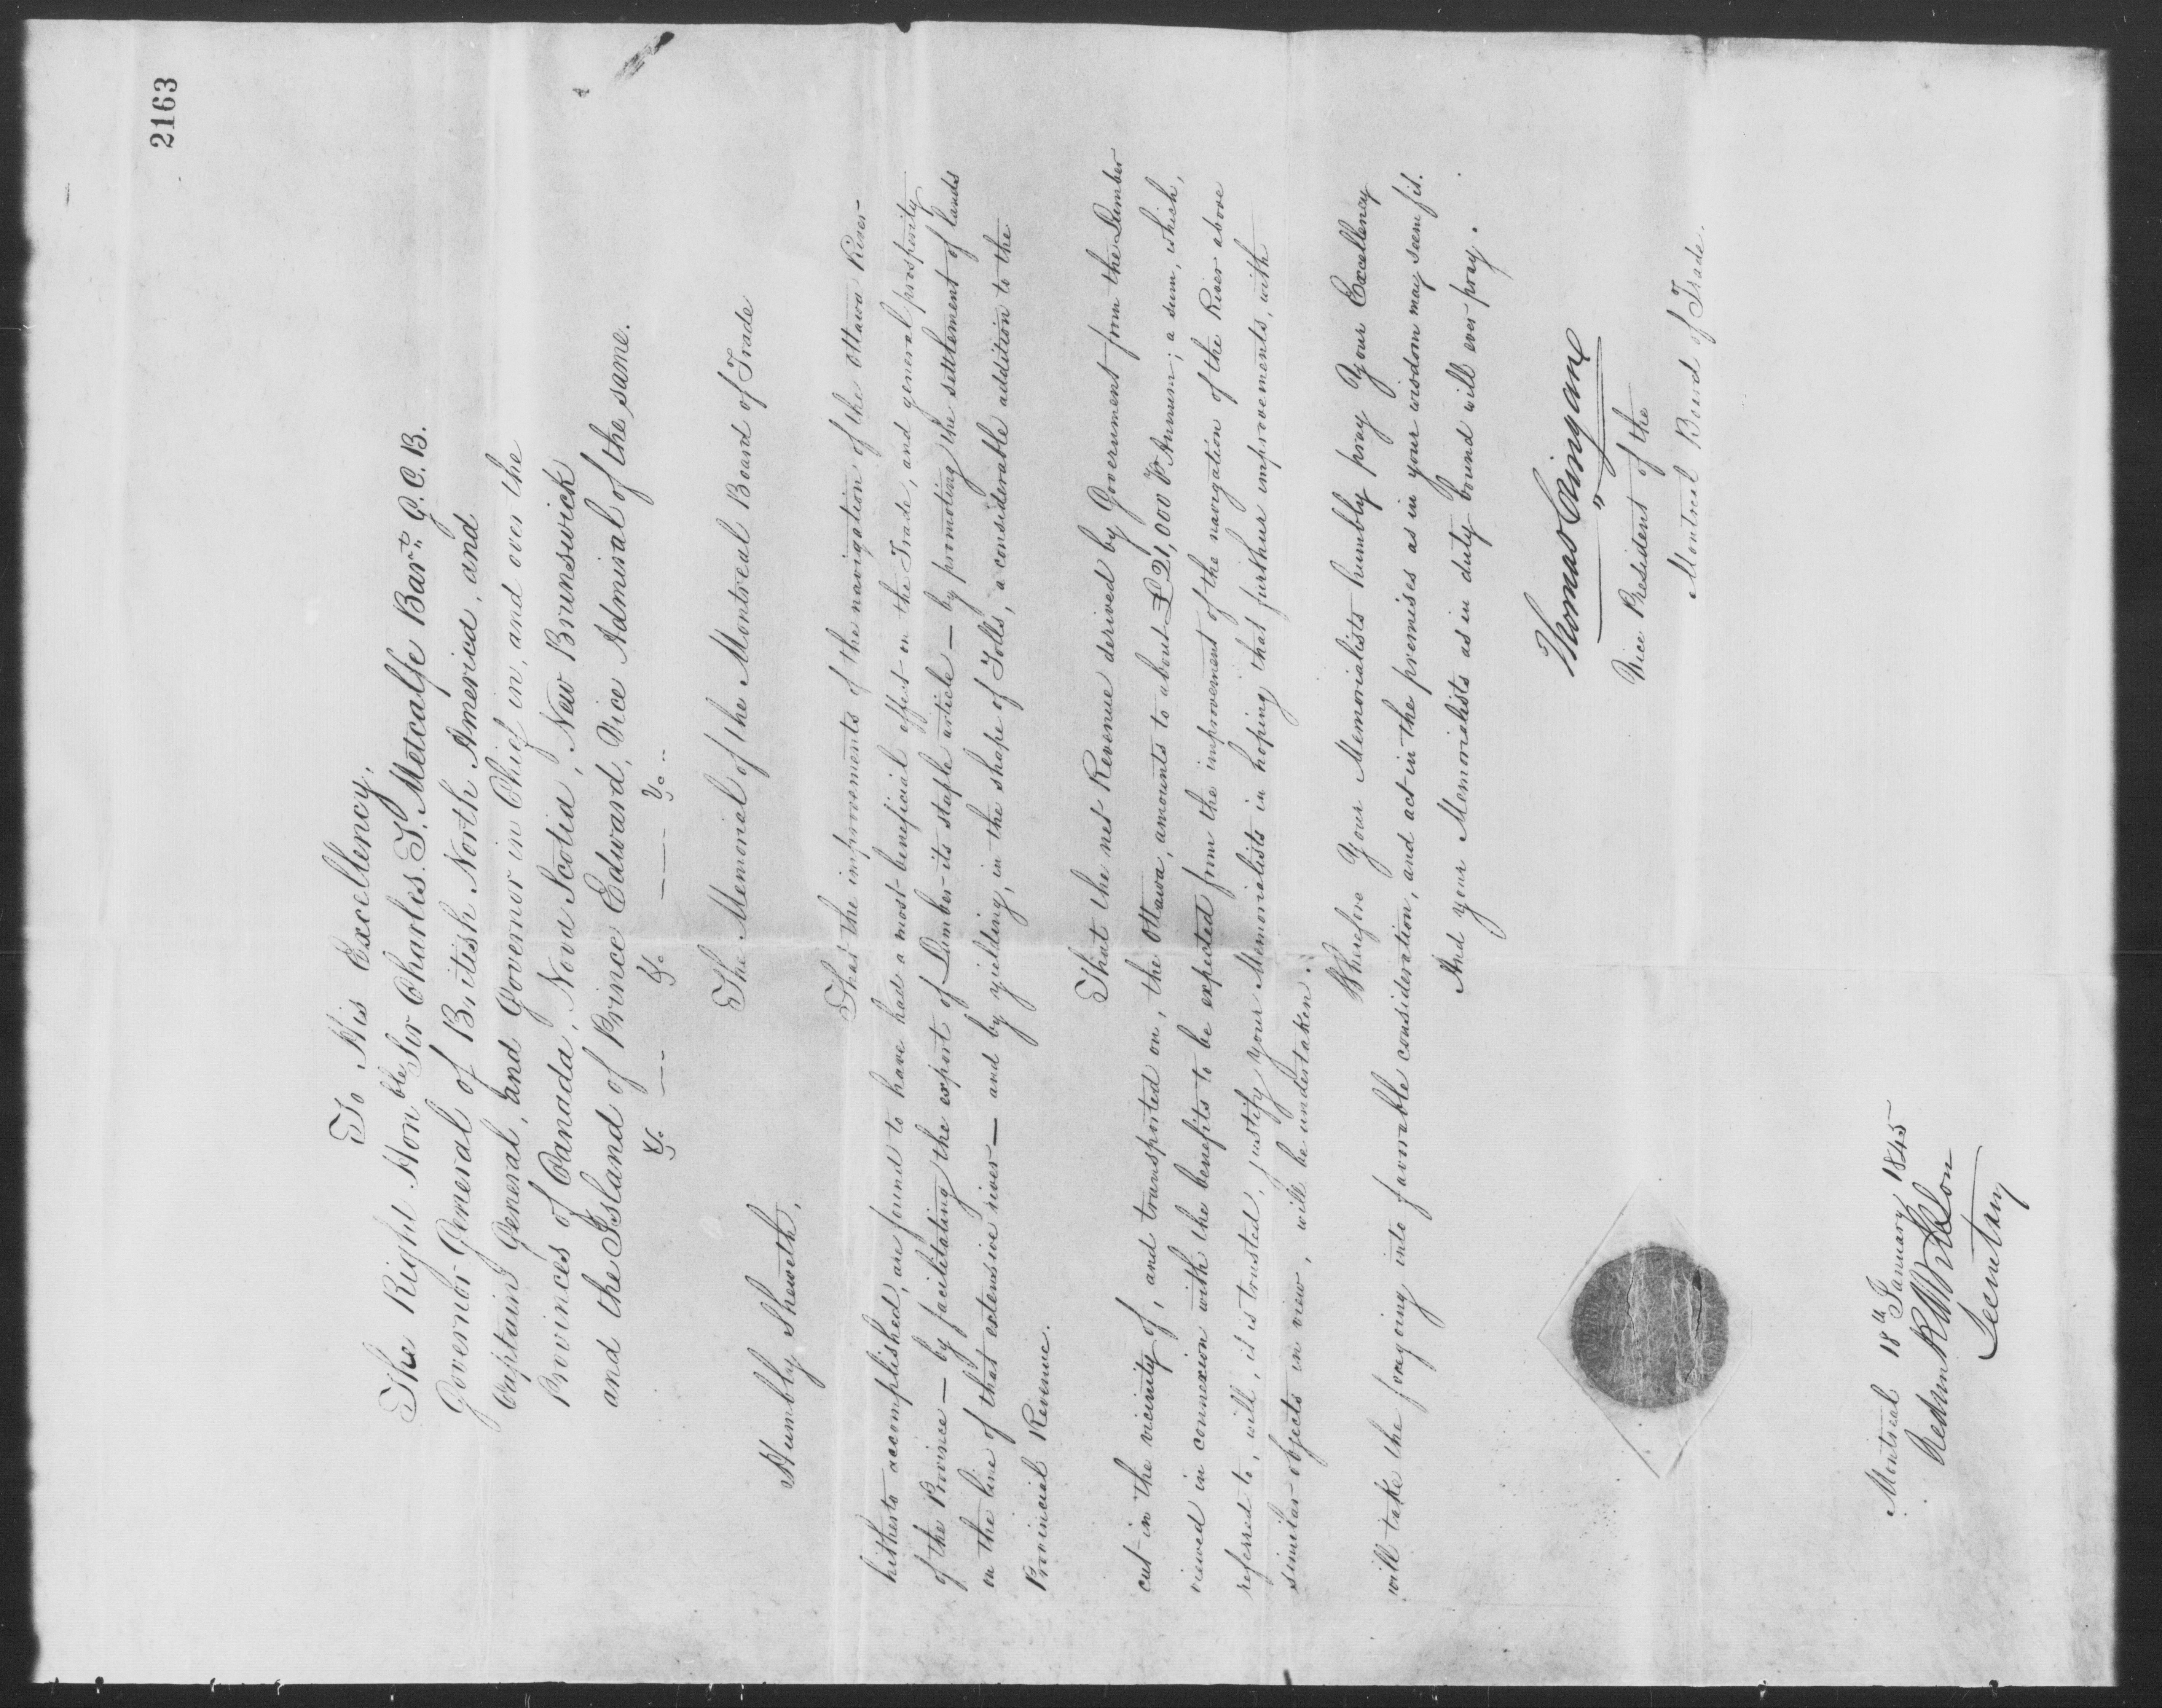 2163
To His Excellency,
The Right Honble Sir Charles T. Metcalfe Bart. G.C.B.
Governor General of British North America, and
Captain General, and Governor in Chief in, and over the
Provinces of Canada, Nova Scotia, New Brunswick
and the Island of Prince Edward, Vice Admiral of the same.
&c. — &c. — — &c..
The Memorial of the Montreal Board of Trade
Humbly Sheweth,
That the improvements of the navigation of the Ottawa River
hitherto accomplished, are found to have had a most beneficial effect on the Trade, and general prosperity
of the Province — by facilitating the export of Lumber its staple article — by promoting the settlement of lands
on the line of that extensive river — and by yielding, in the shape of Tolls, a considerable addition to the
Provincial Revenue.
That the net Revenue derived by Government from the Lumber
cut in the vicinity of, and transported on, the Ottawa, amounts to about £21,000 ⅌ Annum; a sum, which,
viewed in connexion with the benefits to be expected from the improvement of the navigation of the River above
referred to, will, it is trusted, justify your Memorialists in hoping that further improvements, with
similar objects in view, will be undertaken.
Wherefore Your Memorialists humbly pray Your Excellency
will take the foregoing into favorable consideration, and act in the premises as in your wisdom may seem fit.
And your Memorialists as in duty bound will ever pray.
Thomas Cringan
Vice President of the
Montreal Board of Trade.
Montreal 18th January 1845
Secretary